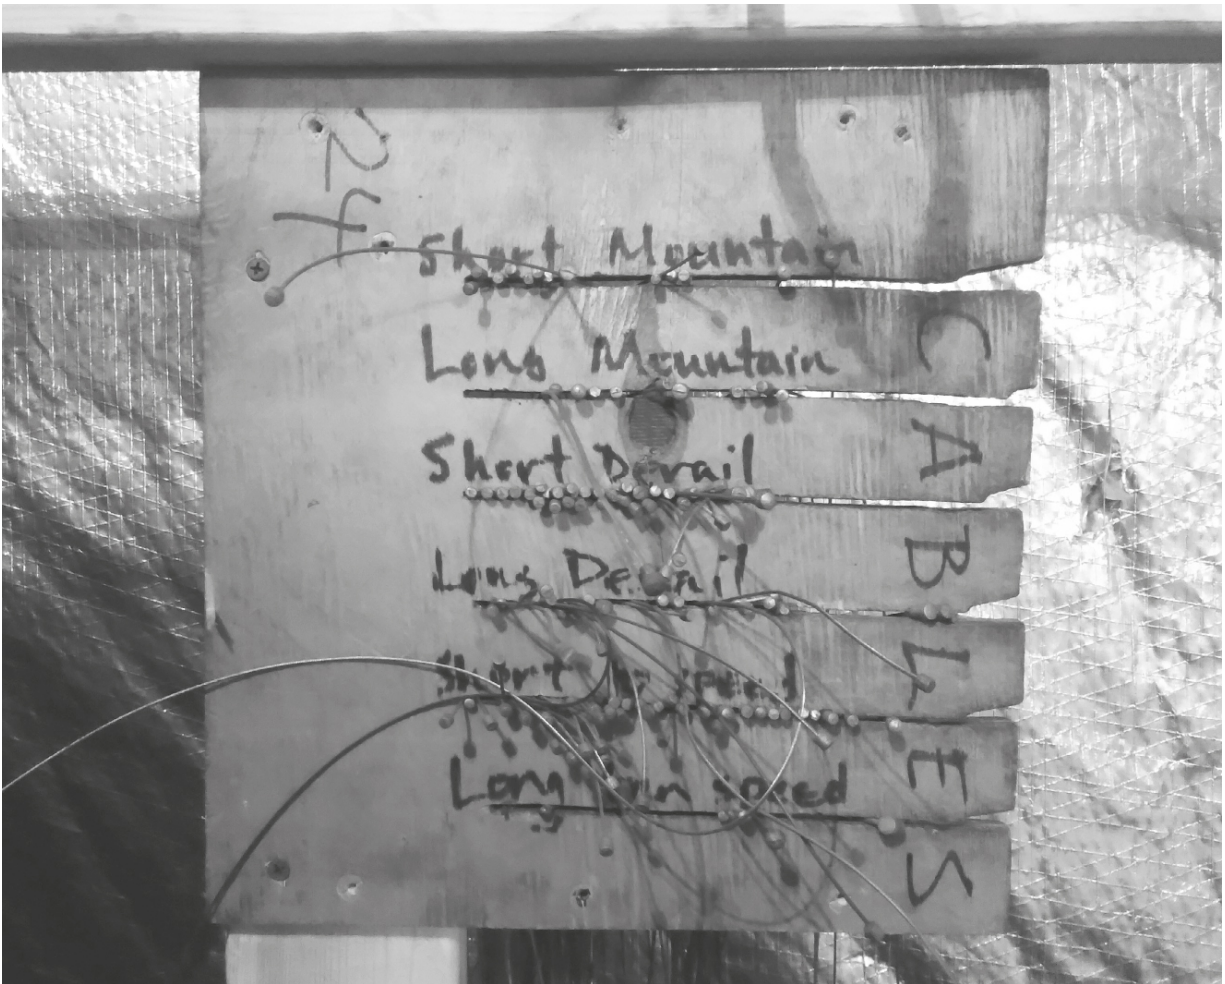 Short Mountain
Long Mountain
Short Derail
Long Derail
Short speed
Long speed
CABLES